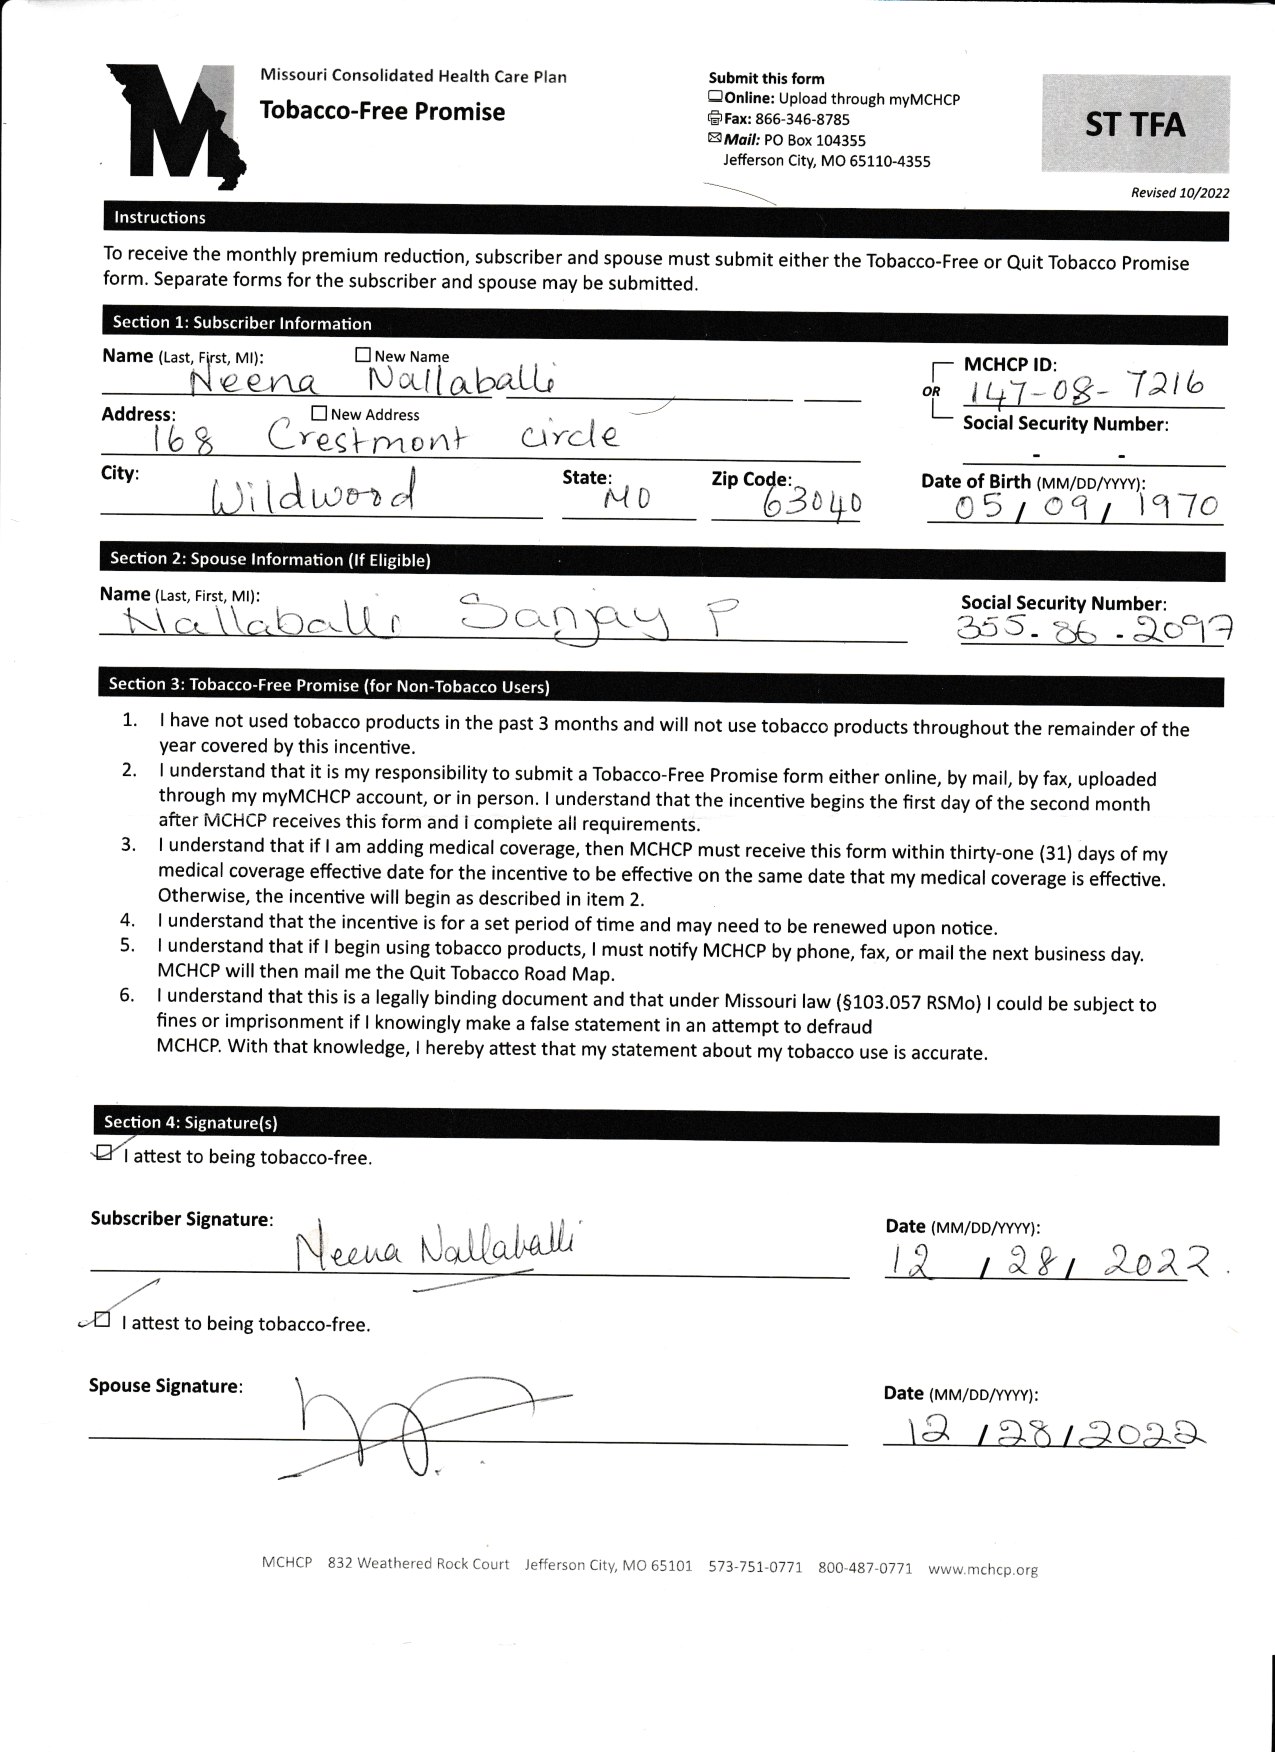 Missouri Consolidated Health Care Plan
Tobacco-Free Promise
Submit this form
Online: Upload through myMCHCP
Fax: 866-346-8785
Mail: PO Box 104355
Jefferson City, MO 65110-4355
ST TFA
Revised 10/2022
Instructions
To receive the monthly premium reduction, subscriber and spouse must submit either the Tobacco-Free or Quit Tobacco Promise
form. Separate forms for the subscriber and spouse may be submitted.
Section 1: Subscriber Information
Name (Last, First, MI): New Name
Neena Nallaballi
MCHCP ID:
OR 147-08-7216
Social Security Number:
- -
Address: New Address
168 Crestmont circle
City: Wildwood State: MO Zip Code: 63040
Date of Birth (MM/DD/YYYY):
05/09/1970
Section 2: Spouse Information (If Eligible)
Name (Last, First, MI):
Nallaballi Sanjay P
Social Security Number:
355-86-2097
Section 3: Tobacco-Free Promise (for Non-Tobacco Users)
1. I have not used tobacco products in the past 3 months and will not use tobacco products throughout the remainder of the
year covered by this incentive.
2. I understand that it is my responsibility to submit a Tobacco-Free Promise form either online, by mail, by fax, uploaded
through my myMCHCP account, or in person. I understand that the incentive begins the first day of the second month
after MCHCP receives this form and i complete all requirements.
3. I understand that if I am adding medical coverage, then MCHCP must receive this form within thirty-one (31) days of my
medical coverage effective date for the incentive to be effective on the same date that my medical coverage is effective.
Otherwise, the incentive will begin as described in item 2.
4. I understand that the incentive is for a set period of time and may need to be renewed upon notice.
5. I understand that if I begin using tobacco products, I must notify MCHCP by phone, fax, or mail the next business day.
MCHCP will then mail me the Quit Tobacco Road Map.
6. I understand that this is a legally binding document and that under Missouri law (§103.057 RSMo) I could be subject to
fines or imprisonment if I knowingly make a false statement in an attempt to defraud
MCHCP. With that knowledge, I hereby attest that my statement about my tobacco use is accurate.
Section 4: Signature(s)
I attest to being tobacco-free.
Subscriber Signature: Neena Nallaballi
Date (MM/DD/YYYY):
12/28/2022
I attest to being tobacco-free.
Spouse Signature:
Date (MM/DD/YYYY):
12/28/2022
MCHCP 832 Weathered Rock Court Jefferson City, MO 65101 573-751-0771 800-487-0771 www.mchcp.org